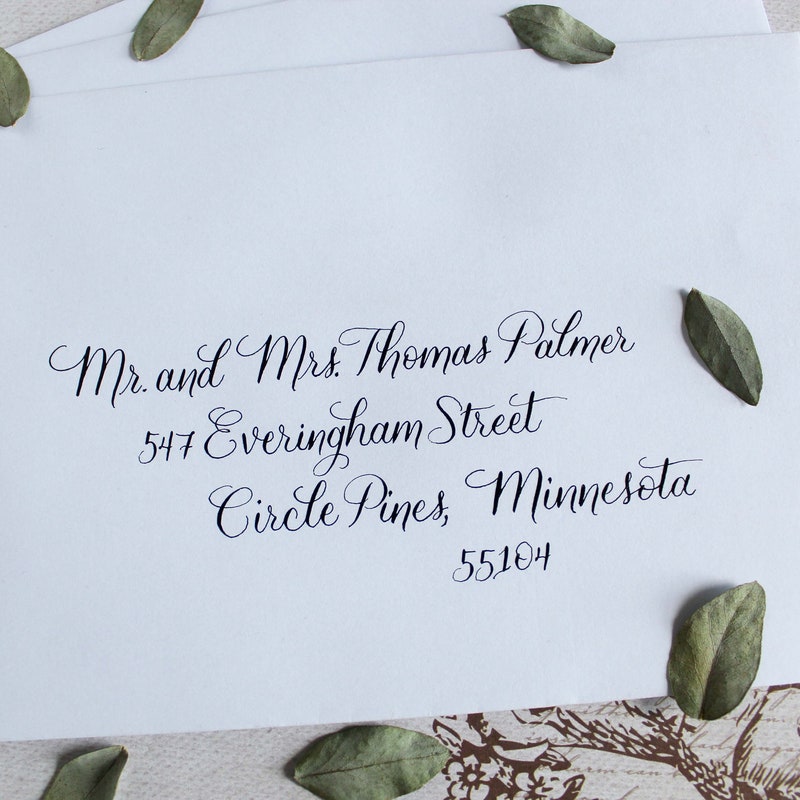 Mr. and Mrs. Thomas Palmer
547 Everingham Street
Circle Pines, Minnesota
55104